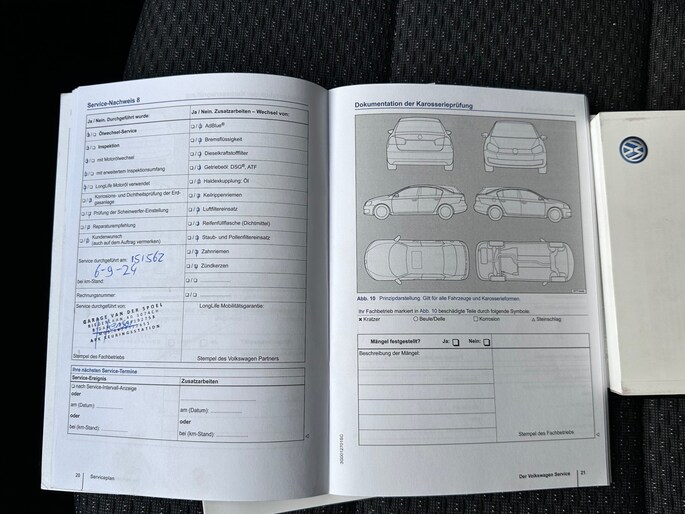 Service-Nachweis 8
Ja / Nein. Durchgeführt wurde:
Ölwechsel-Service
Inspektion
mit Motorölwechsel
mit erweitertem Inspektionsumfang
LongLife Motoröl verwendet
Korrosions- und Dichtheitsprüfung der Erdgasanlage
Prüfung der Scheinwerfer-Einstellung
Reparaturempfehlung
Kundenwunsch
(auch auf dem Auftrag vermerken)
Service durchgeführt am: 151562
6-9-24
bei km-Stand:
Rechnungsnummer:
Service durchgeführt von:
GARAGE VAN DER SPOEL
APK KEURINGSSTATION
Stempel des Fachbetriebs
Ja / Nein. Zusatzarbeiten – Wechsel von:
AdBlue®
Bremsflüssigkeit
Dieselkraftstofffilter
Getriebeöl: DSG®, ATF
Haldexkupplung: Öl
Keilrippenriemen
Luftfiltereinsatz
Reifenfüllflasche (Dichtmittel)
Staub- und Pollenfiltereinsatz
Zahnriemen
Zündkerzen
LongLife Mobilitätsgarantie:
Stempel des Volkswagen Partners
Ihre nächsten Service-Termine
Service-Ereignis
nach Service-Intervall-Anzeige
oder
am (Datum):
oder
bei (km-Stand):
Zusatzarbeiten
am (Datum):
oder
bei (km-Stand):
20 Serviceplan
Dokumentation der Karosserieprüfung
Abb. 10 Prinzipdarstellung. Gilt für alle Fahrzeuge und Karosserieformen.
Ihr Fachbetrieb markiert in Abb. 10 beschädigte Teile durch folgende Symbole:
x Kratzer O Beule/Delle □ Korrosion △ Steinschlag
Mängel festgestellt? Ja: Nein:
Beschreibung der Mängel
Stempel des Fachbetriebs
Der Volkswagen Service 21